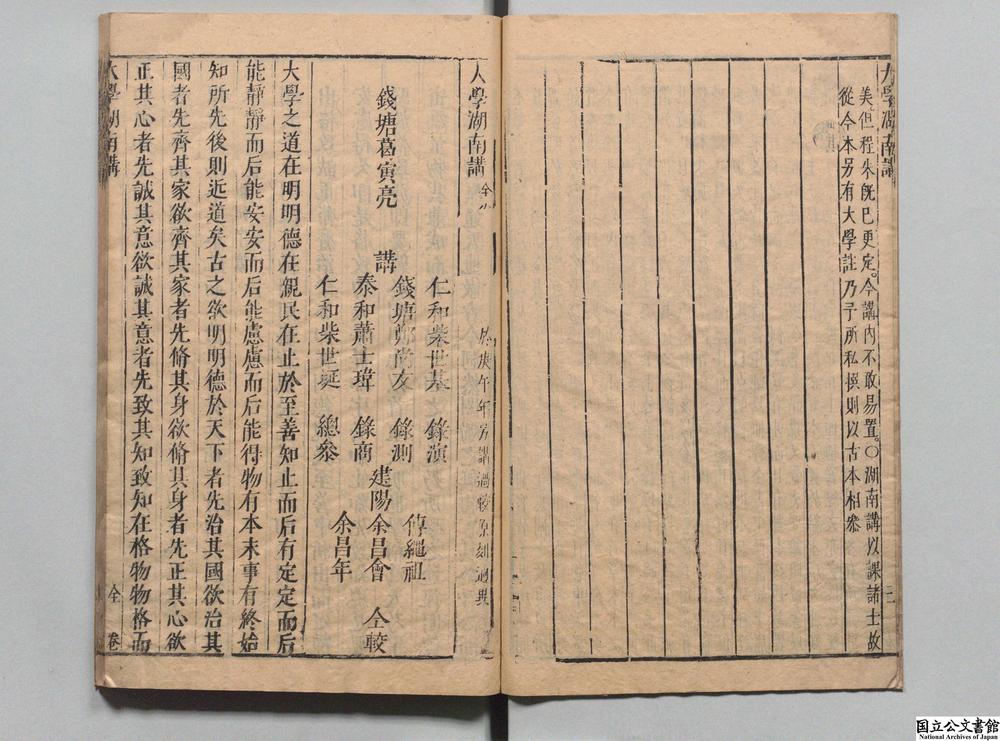 大學湖南講
三
美但程朱旣已更定。今講內不敢易置。○湖南講以課諸士故
從今本另有大學註乃予所私撰則以古本相叅
大學湖南講
庚午年另講過較原刻逈異
錢塘葛寅亮 講
仁和柴世基 錄演
錢塘鄭尚友 錄測
泰和蕭士瑋 錄商
仁和柴世埏 總叅
傅繩祖
建陽余昌會 仝較
余昌年
大學之道在明明德在親民在止於至善知止而后有定定而后
能靜靜而后能安安而后能慮慮而后能得物有本末事有終始
知所先後則近道矣古之欲明明德於天下者先治其國欲治其
國者先齊其家欲齊其家者先脩其身欲脩其身者先正其心欲
正其心者先誠其意欲誠其意者先致其知致知在格物物格而
大學湖南講
全
卷
国立公文書館
National Archives of Japan